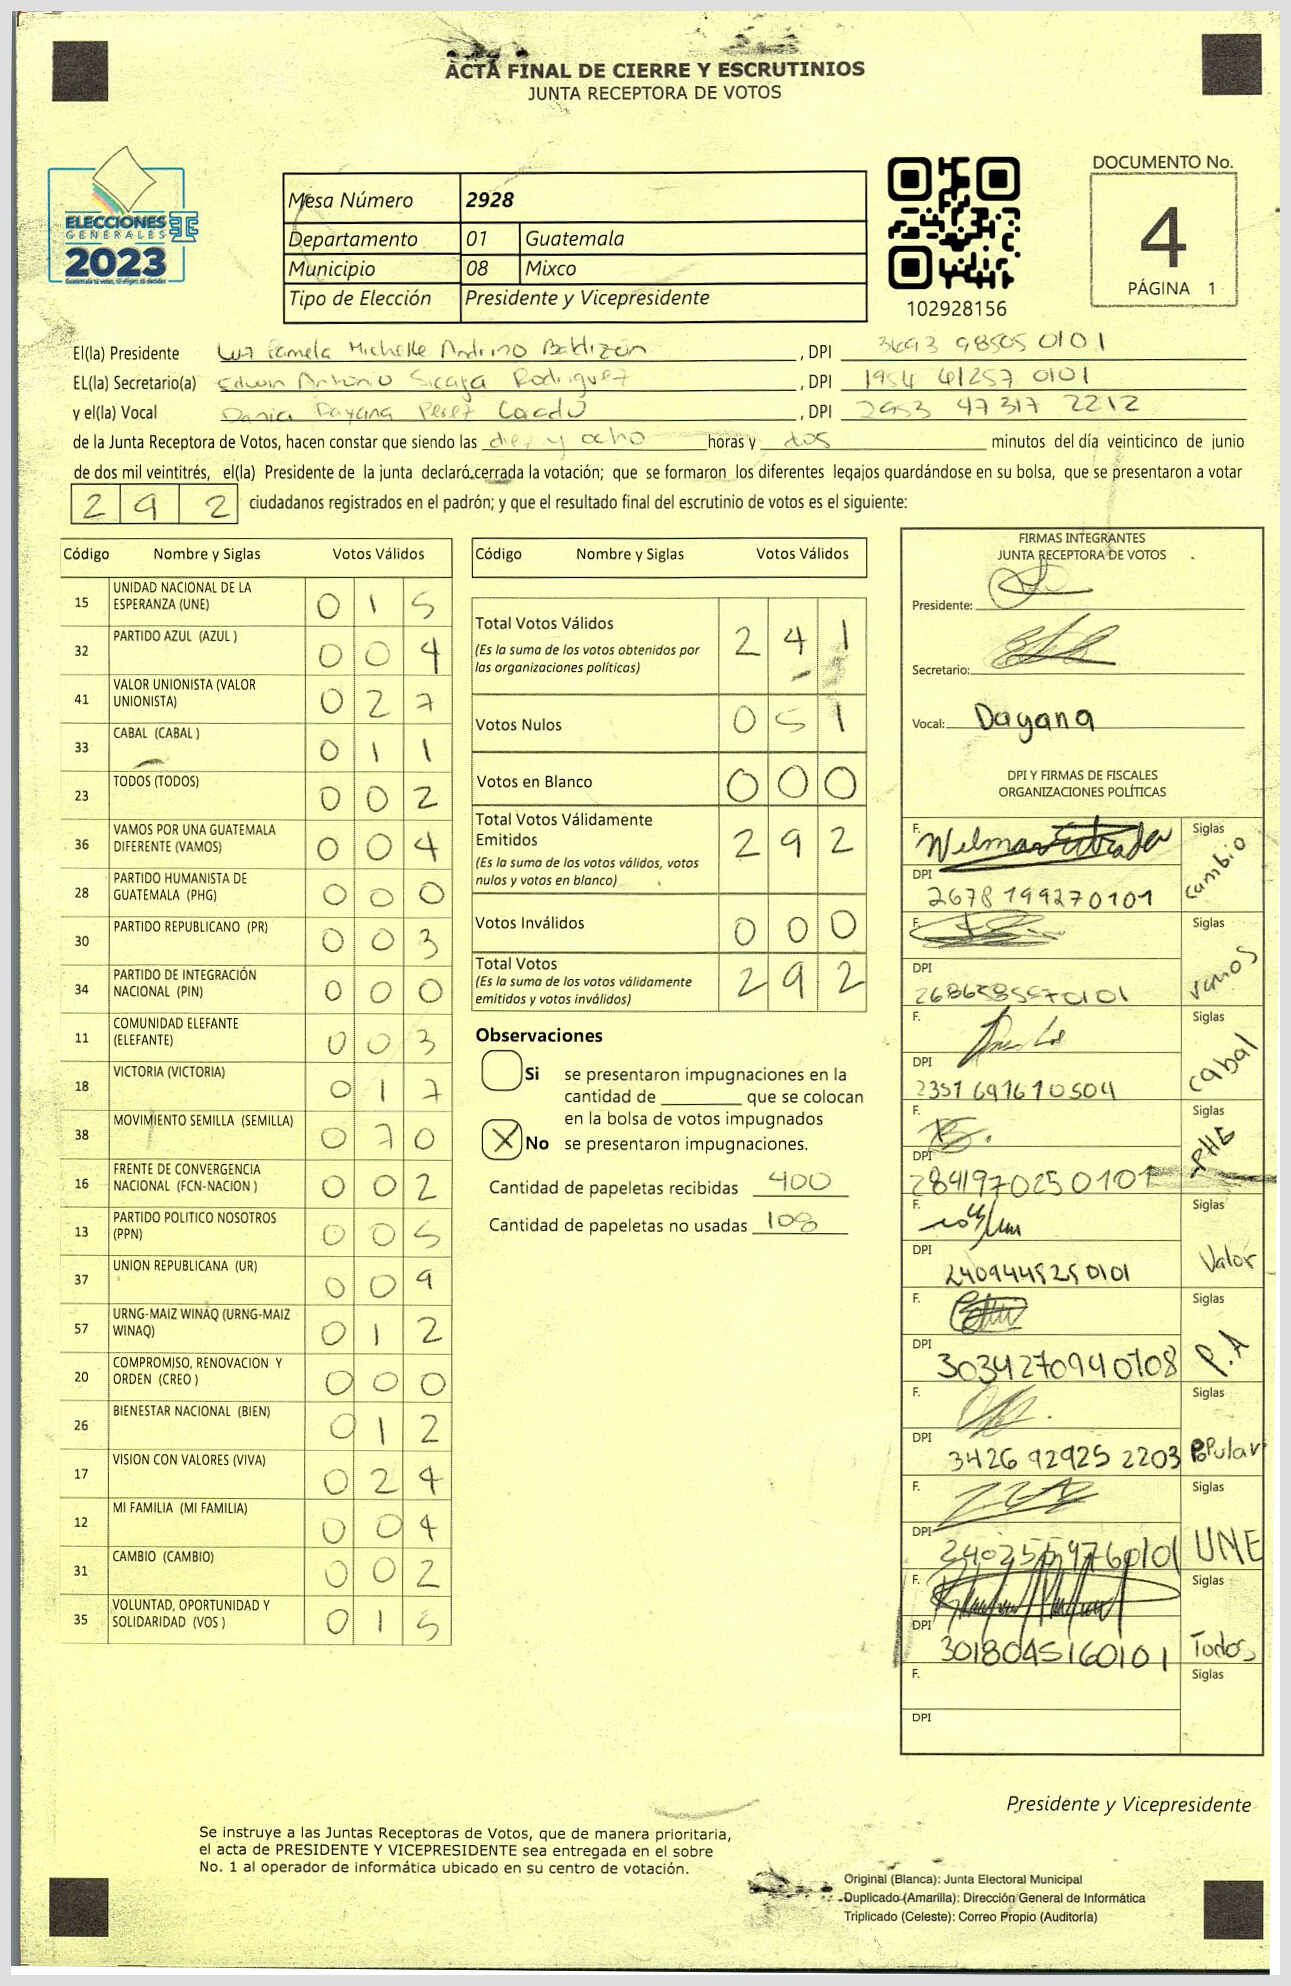 ACTA FINAL DE CIERRE Y ESCRUTINIOS
JUNTA RECEPTORA DE VOTOS
ELECCIONES
GENERALES
2023
Mesa Número 2928
Departamento 01 Guatemala
Municipio 08 Mixco
Tipo de Elección Presidente y Vicepresidente
102928156
DOCUMENTO No.
4
PÁGINA 1
El(la) Presidente Luz Pamela Michelle Andrino Baldizón, DPI 3693 98505 0101
EL(la) Secretario(a) Edwin Antonio Sicaja Rodriguez, DPI 1954 61257 0101
y el(la) Vocal Dania Dayana Perez, DPI 2953 47317 2212
de la Junta Receptora de Votos, hacen constar que siendo las diez y ocho horas y dos minutos del día veinticinco de junio
de dos mil veintitrés, el(la) Presidente de la junta declaró cerrada la votación; que se formaron los diferentes legajos guardándose en su bolsa, que se presentaron a votar
292 ciudadanos registrados en el padrón; y que el resultado final del escrutinio de votos es el siguiente:
Código Nombre y Siglas Votos Válidos
15 UNIDAD NACIONAL DE LA ESPERANZA (UNE) 015
32 PARTIDO AZUL (AZUL ) 004
41 VALOR UNIONISTA (VALOR UNIONISTA) 027
33 CABAL (CABAL ) 011
23 TODOS (TODOS) 002
36 VAMOS POR UNA GUATEMALA DIFERENTE (VAMOS) 004
28 PARTIDO HUMANISTA DE GUATEMALA (PHG) 000
30 PARTIDO REPUBLICANO (PR) 003
34 PARTIDO DE INTEGRACIÓN NACIONAL (PIN) 000
11 COMUNIDAD ELEFANTE (ELEFANTE) 003
18 VICTORIA (VICTORIA) 017
38 MOVIMIENTO SEMILLA (SEMILLA) 070
16 FRENTE DE CONVERGENCIA NACIONAL (FCN-NACION ) 002
13 PARTIDO POLITICO NOSOTROS (PPN) 005
37 UNION REPUBLICANA (UR) 009
57 URNG-MAIZ WINAQ (URNG-MAIZ WINAQ) 012
20 COMPROMISO, RENOVACION Y ORDEN (CREO ) 000
26 BIENESTAR NACIONAL (BIEN) 012
17 VISION CON VALORES (VIVA) 024
12 MI FAMILIA (MI FAMILIA) 004
31 CAMBIO (CAMBIO) 002
35 VOLUNTAD, OPORTUNIDAD Y SOLIDARIDAD (VOS ) 015
Código Nombre y Siglas Votos Válidos
Total Votos Válidos 241
(Es la suma de los votos obtenidos por
las organizaciones políticas)
Votos Nulos 051
Votos en Blanco 000
Total Votos Válidamente
Emitidos 292
(Es la suma de los votos válidos, votos
nulos y votos en blanco)
Votos Inválidos 000
Total Votos 292
(Es la suma de los votos válidamente
emitidos y votos inválidos)
Observaciones
Si se presentaron impugnaciones en la
cantidad de ________ que se colocan
en la bolsa de votos impugnados
X No se presentaron impugnaciones.
Cantidad de papeletas recibidas 400
Cantidad de papeletas no usadas 108
FIRMAS INTEGRANTES
JUNTA RECEPTORA DE VOTOS
Presidente:
Secretario:
Vocal: Dayana
DPI Y FIRMAS DE FISCALES
ORGANIZACIONES POLÍTICAS
F. Wilmar Estrada Siglas
DPI 2678 199270101 Cambio
F. Siglas
DPI vamos
F. Siglas
DPI 2351 691610504 Cabal
F. Siglas
DPI 2841970250101 PHG
F. Siglas
DPI 2409445250101 Valor
F. Siglas
DPI 3034270940108 P.A
F. Siglas
DPI 3426 92925 2203 Popular
F. Siglas
DPI UNE
F. Siglas
DPI 3018045160101 Todos
F. Siglas
DPI
Presidente y Vicepresidente
Se instruye a las Juntas Receptoras de Votos, que de manera prioritaria,
el acta de PRESIDENTE Y VICEPRESIDENTE sea entregada en el sobre
No. 1 al operador de informática ubicado en su centro de votación.
Original (Blanca): Junta Electoral Municipal
Duplicado (Amarilla): Dirección General de Informática
Triplicado (Celeste): Correo Propio (Auditoría)